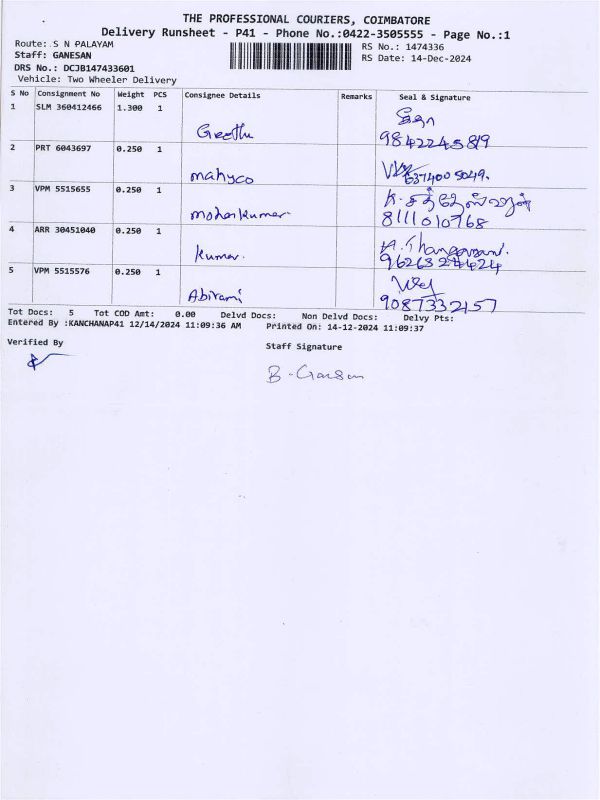 THE PROFESSIONAL COURIERS, COIMBATORE
Delivery Runsheet - P41 - Phone No.:0422-3505555 - Page No.:1
Route: S N PALAYAM
RS No.: 1474336
Staff: GANESAN
RS Date: 14-Dec-2024
DRS No.: DCJB147433601
Vehicle: Two Wheeler Delivery
S No Consignment No Weight PCS Consignee Details Remarks Seal & Signature
1 SLM 360412466 1.300 1
Geethu
9842245819
2 PRT 6043697 0.250 1
mahyco
6374005049.
3 VPM 5515655 0.250 1
mohankumar
8111010768
4 ARR 30451040 0.250 1
kumar.
A. Thangavani.
9626324424
5 VPM 5515576 0.250 1
Abirami
9087332157
Tot Docs: 5 Tot COD Amt: 0.00 Delvd Docs: Non Delvd Docs: Delvy Pts:
Entered By :KANCHANAP41 12/14/2024 11:09:36 AM Printed On: 14-12-2024 11:09:37
Verified By
Staff Signature